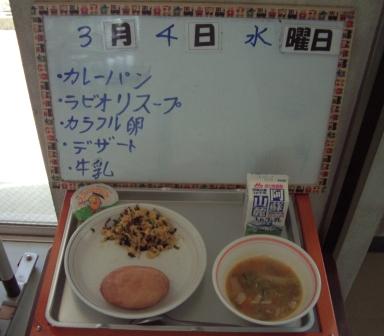 3月4日 水曜日
・カレーパン
・ラビオリスープ
・カラフル卵
・デザート
・牛乳